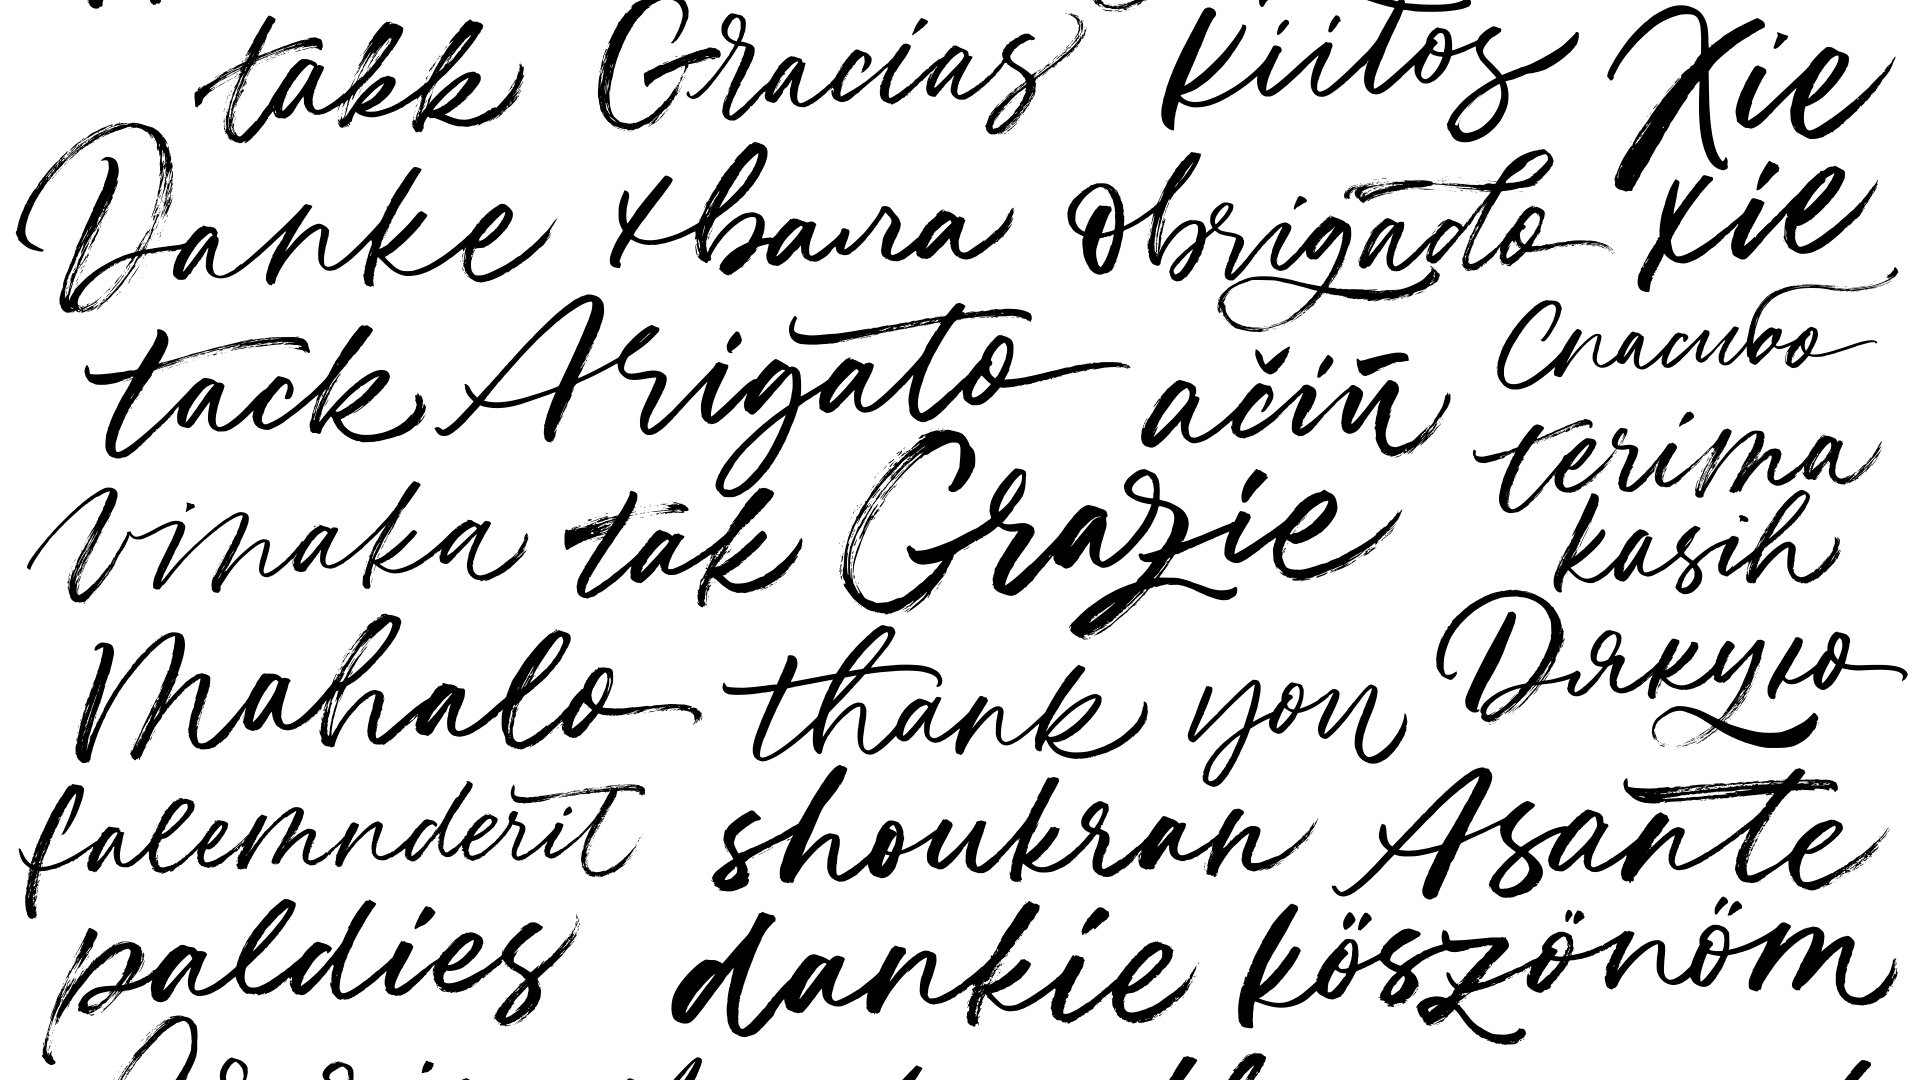 takk Gracias Kiitos Xie
Danke хвала obrigado xie
tack Arigato ačiū Спасибо
terima
vinaka tak Grazie kasih
Mahalo thank you Дякую
falemnderit shoukran Asante
paldies dankie köszönöm